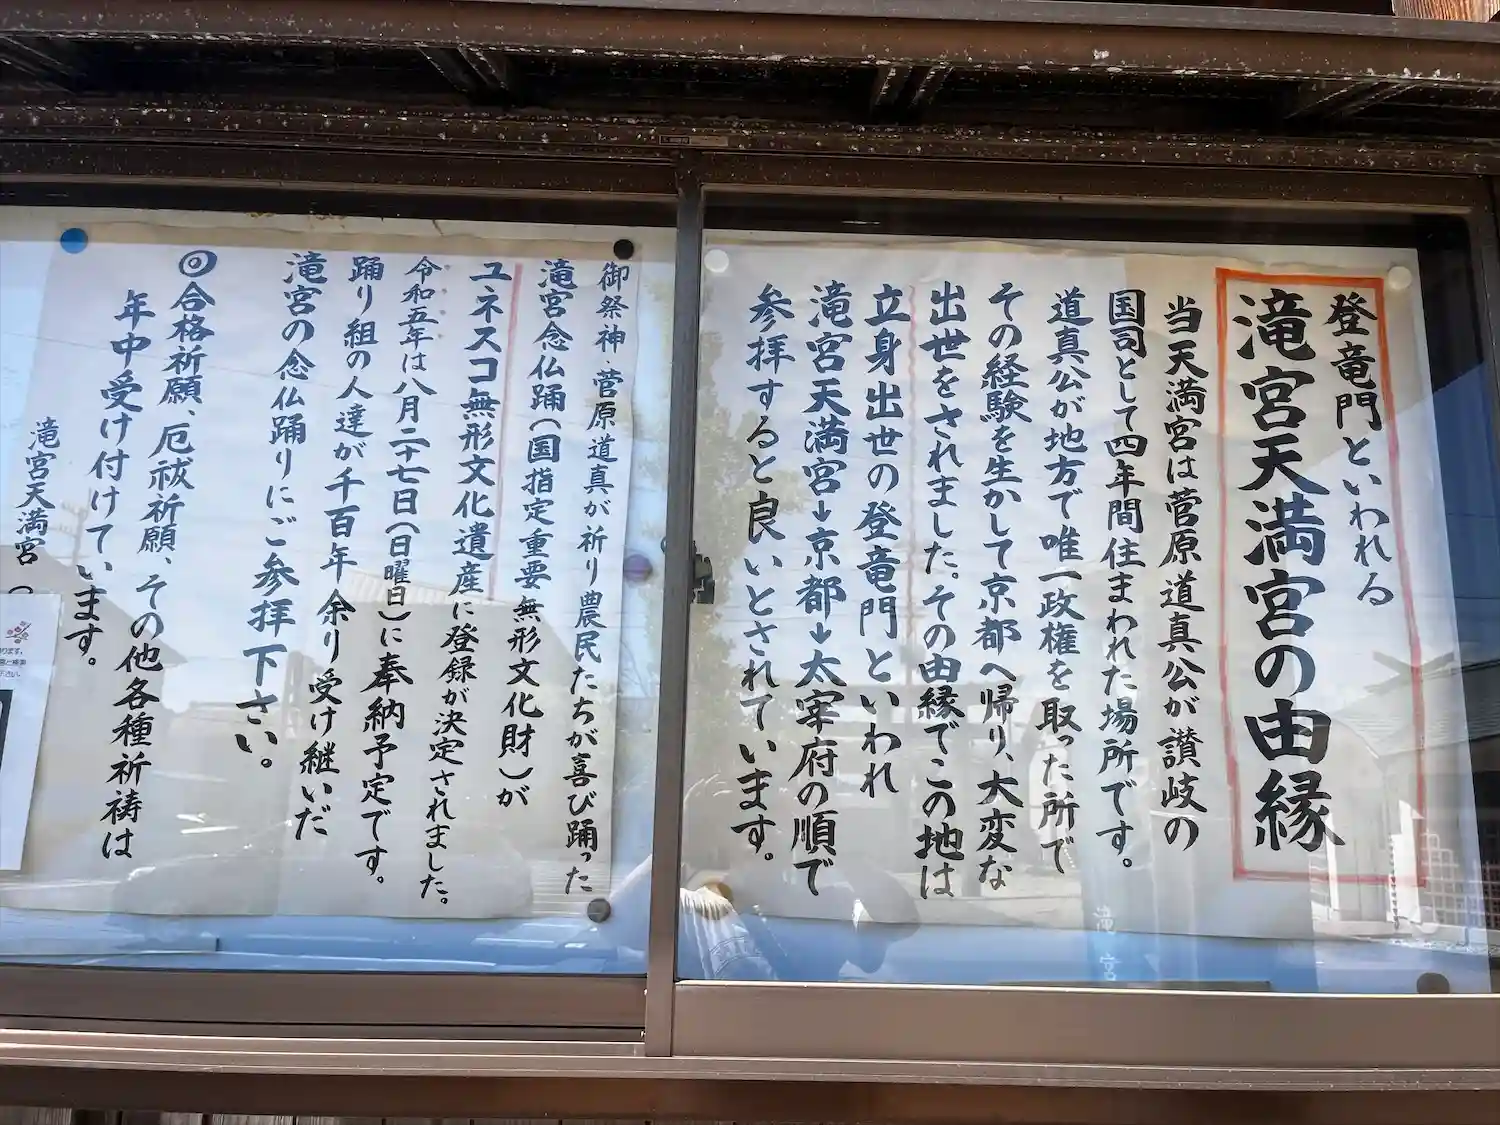 登竜門といわれる
滝宮天満宮の由縁
当天満宮は菅原道真公が讃岐の
国司として四年間住まわれた場所です。
道真公が地方で唯一政権を取った所で
その経験を生かして京都へ帰り、大変な
出世をされました。その由縁でこの地は
立身出世の登竜門といわれ
滝宮天満宮→京都→太宰府の順で
参拝すると良いとされています。
御祭神 菅原道真が祈り農民たちが喜び踊った
滝宮念仏踊(国指定重要無形文化財)が
ユネスコ無形文化遺産に登録が決定されました。
令和五年は八月二十七日(日曜日)に奉納予定です。
踊り組の人達が千百年余り受け継いだ
滝宮の念仏踊りにご参拝下さい。
◎合格祈願、厄祓祈願、その他各種祈祷は
年中受け付けています。
滝宮天満宮(
滝宮